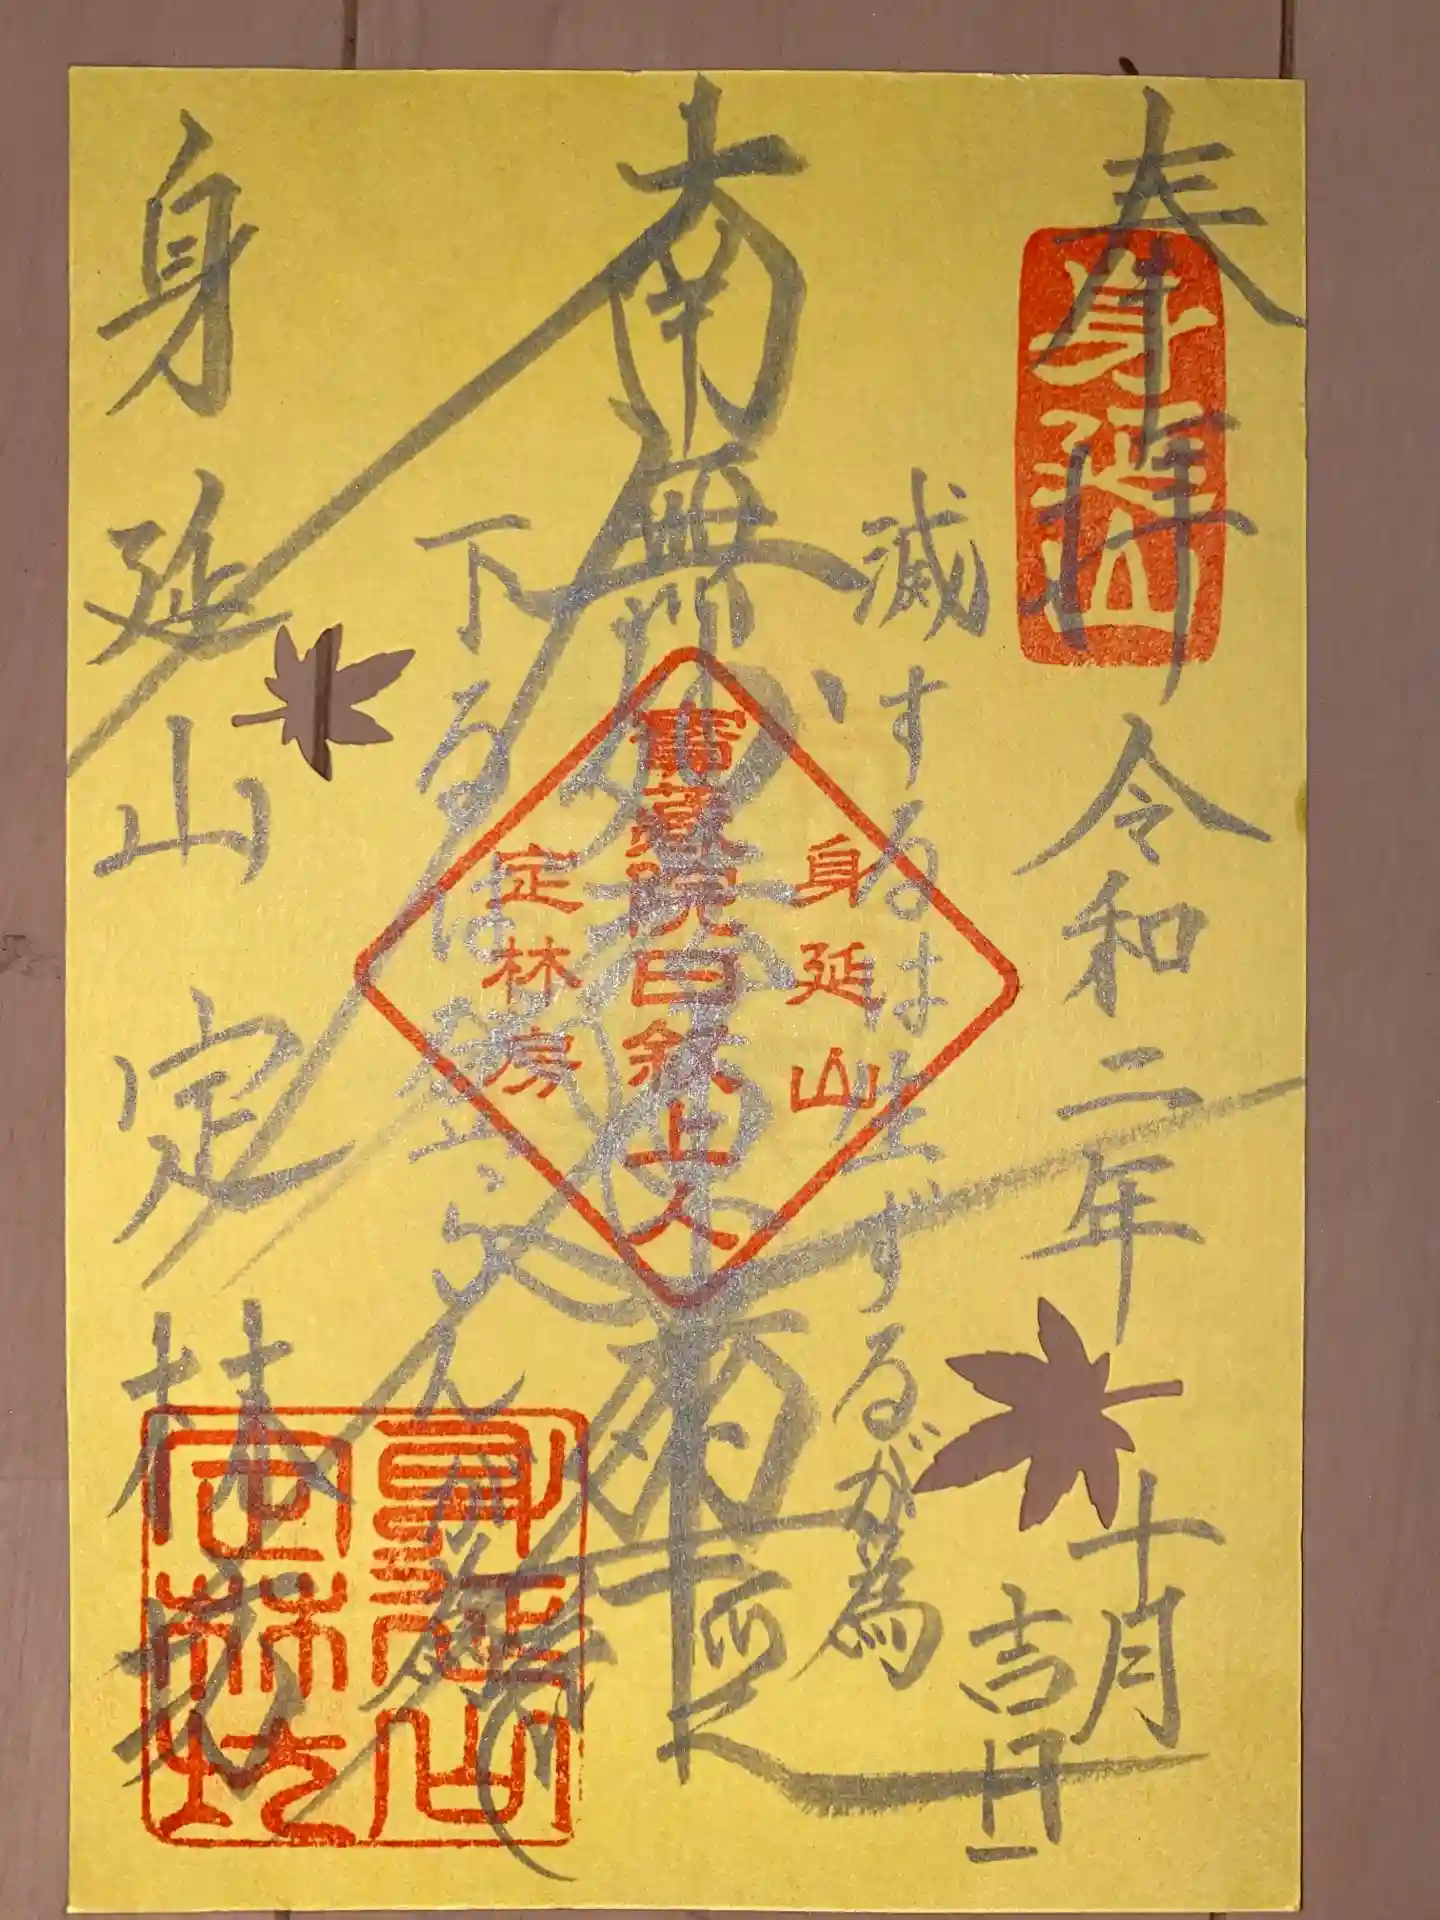 奉拝 令和二年十月吉日
身延山
滅するは生ずるが為
南無妙法蓮華経
身延山
寶蔵院日叙上人
定林房
下るは登らんが為
身延山定林坊
身延山
定林坊